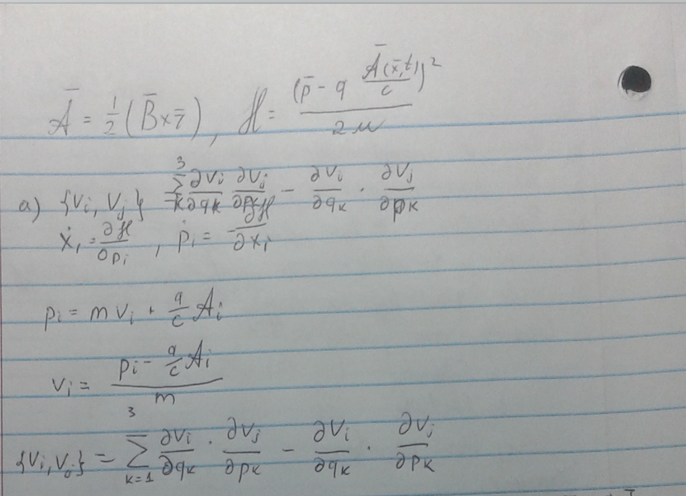 Ā = 1/2 (B̄ × r̄), H = (p̄ - q Ā(x̄,t)/c)² / 2m
a) {Vi, Vj} 3 Σ k ∂Vi/∂qk ∂Vj/∂pk - ∂Vi/∂qk · ∂Vj/∂pk
ẋi = ∂H/∂pi, ṗi = -∂H/∂xi
pi = mvi + q/c Ai
vi = (pi - q/c Ai) / m
{Vi, Vj} = 3 Σ k=1 ∂Vi/∂qk · ∂Vj/∂pk - ∂Vi/∂qk · ∂Vj/∂pk